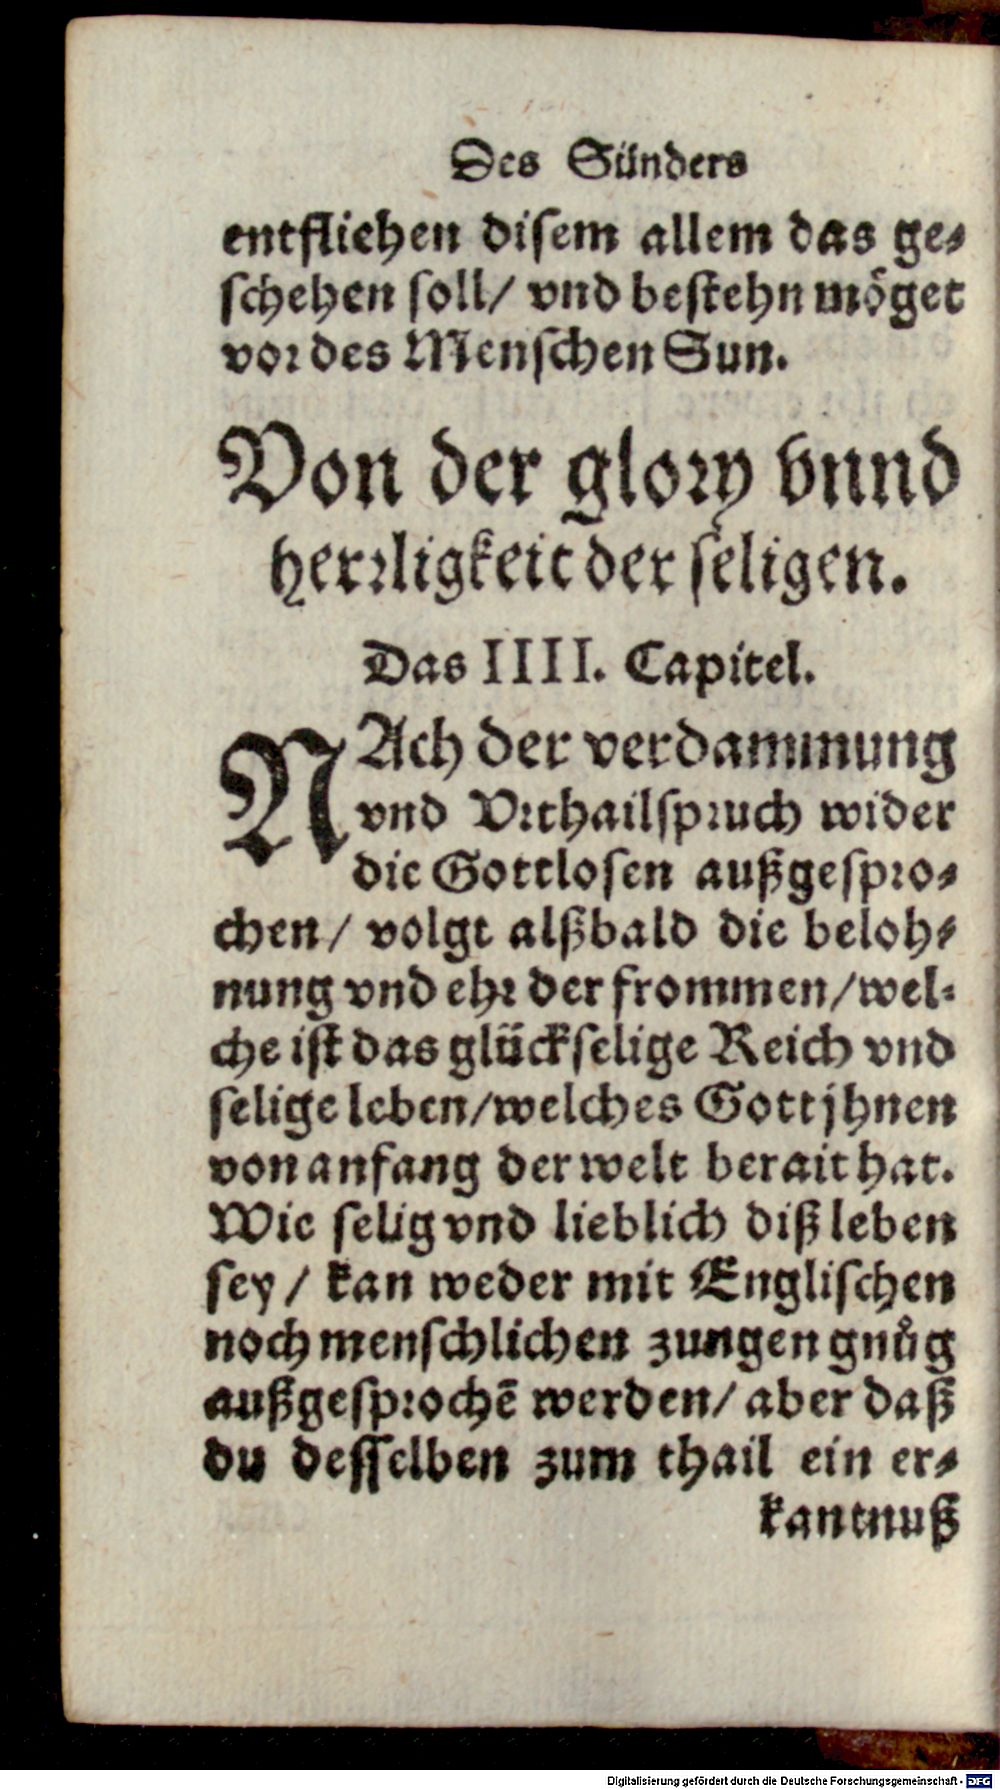 Des Sünders
entfliehen disem allem das ge-
schehen soll/ vnd bestehn möget
vor des Menschen Sun.
Von der glory vnnd
herrligkeit der seligen.
Das IIII. Capitel.
NAch der verdammung
vnd Vrthailspruch wider
die Gottlosen außgespro-
chen/ volgt alßbald die beloh-
nung vnd ehr der frommen/wel-
che ist das glückselige Reich vnd
selige leben/welches Gott jhnen
von anfang der welt berait hat.
Wie selig vnd lieblich diß leben
sey/ kan weder mit Englischen
noch menschlichen zungen gnůg
außgesprochē werden/ aber daß
du desselben zum thail ein er-
kantnuß
Digitalisierung gefördert durch die Deutsche Forschungsgemeinschaft - DFG